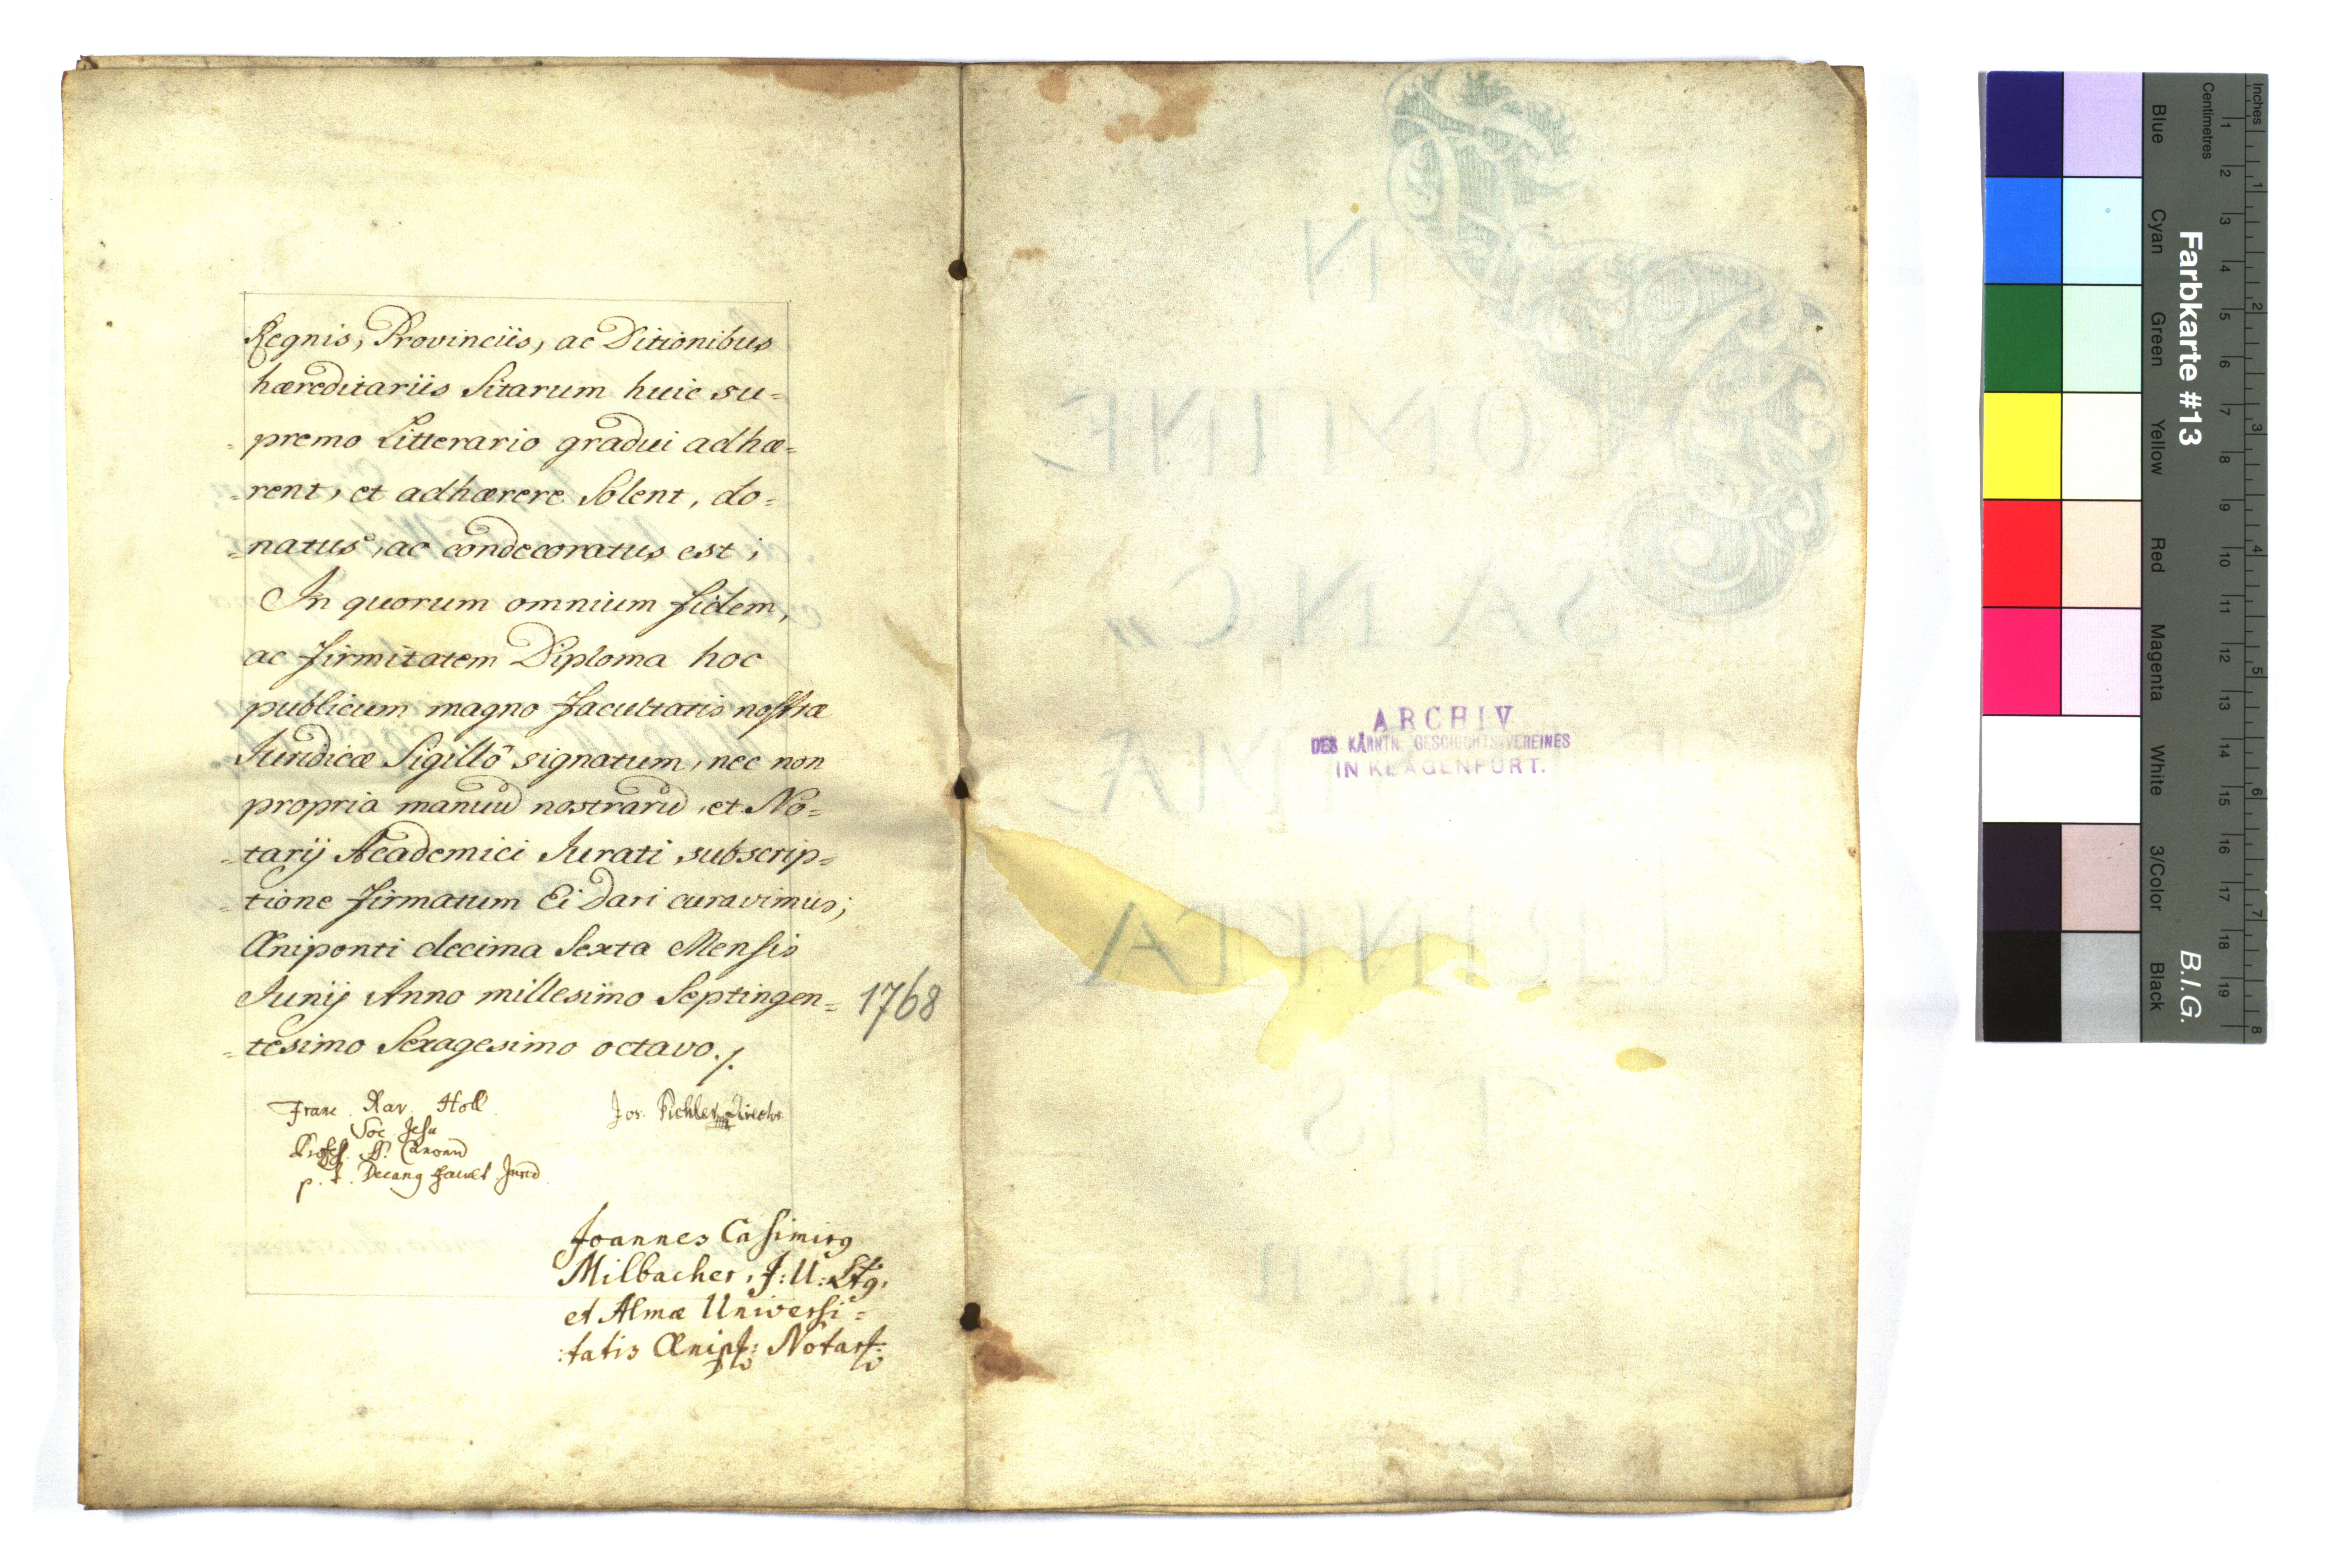 Regnis, Provinciis, ac Ditionibus
hæreditariis Sitarum huic su=
=premo Litterario gradui adhæ=
=rent, et adhærere Solent, do=
=natus, ac condecoratus est;
In quorum omnium fidem,
ac firmitatem Diploma hoc
publicum magno facultatis nostræ
Juridicæ Sigillô signatum, nec non
propria manuū nostrarū, et No=
=tarij Academici Jurati subscrip=
=tione firmatum Ei dari curavimus;
Œniponti decima Sexta Mensis
Junij Anno millesimo Septingen=
1768
=tesimo Sexagesimo octavo./.
Franc. Xav. Holl
Soc. Jesu
Profess. SS. Canonū
p. t. Decanq Facult Jurid
Jos. Pichler Director
Joannes Casimirq
Milbacher, J: U: Ltq,
et Almæ Universi=
:tatis Œnipt: Notart:
IN
NOMINE
SANC„
TISSIMÆ
ARCHIV
DES KÄRNTN. GESCHICHTSVEREINES
IN KLAGENFURT.
Farbkarte #13
B.I.G.
Blue
Cyan
Green
Yellow
Red
Magenta
White
3/Color
Black
Centimetres
Inches
1 2 3 4 5 6 7 8 9 10 11 12 13 14 15 16 17 18 19
1 2 3 4 5 6 7 8